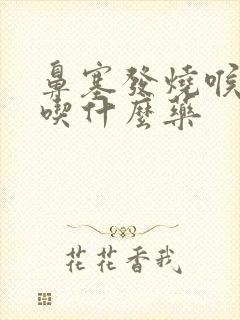 鼻塞發燒喉
喫什麼藥
花花香我